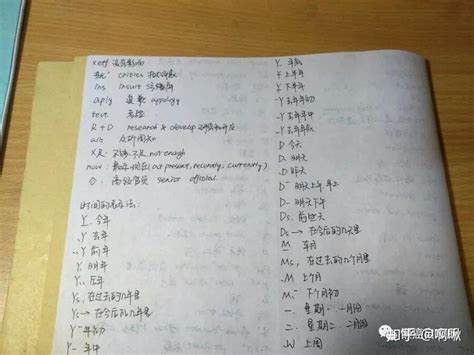 xeff 没有影响
critics 批评家
ins insult 污辱
aply 道歉 apology
test 考验
R+D research & develop 研究和开发
X足 不够, 不足 not enough
now 最近, 现在 (at present, recently, currently)
O. 高级官员 senior official
时间的表示法:
Y 今年
.Y 去年
..Y 前年
Y. 明年
Y.. 后年
Ys, 在过去的几年里
Ys → 在今后的几年里
Y 年初
Y- 年中
Y. 年底
Y 上半年
Y 下半年
.Y 去年年初
.Y 去年年中
.Y 去年年底
D 今天
D. 明天
.D 昨天
D 明天上午 早上
D. 明天下午
Ds. 前些天
Ds → 在今后的几天里
M 本月
Ms, 在过去的几个月里
.M 上个月
M. 下个月初
一. 星期一 一月份
二. 星期二. 二月份
.W 上周
知乎 @啊啾